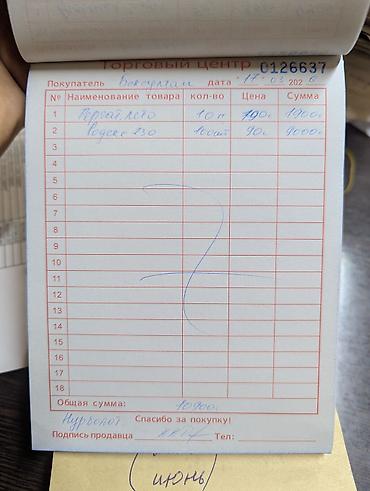 Торговый центр 0126637
Покупатель Бексултан дата "17" 03 2026
№ Наименование товара кол-во Цена Сумма
1 10п 190с 1900с
2 100шт 90с 9000с
3
4
5
6
7
8
9
10
11
12
13
14
15
16
17
18
Общая сумма: 10900с
Нурболот Спасибо за покупку!
Подпись продавца Тел:
июнь